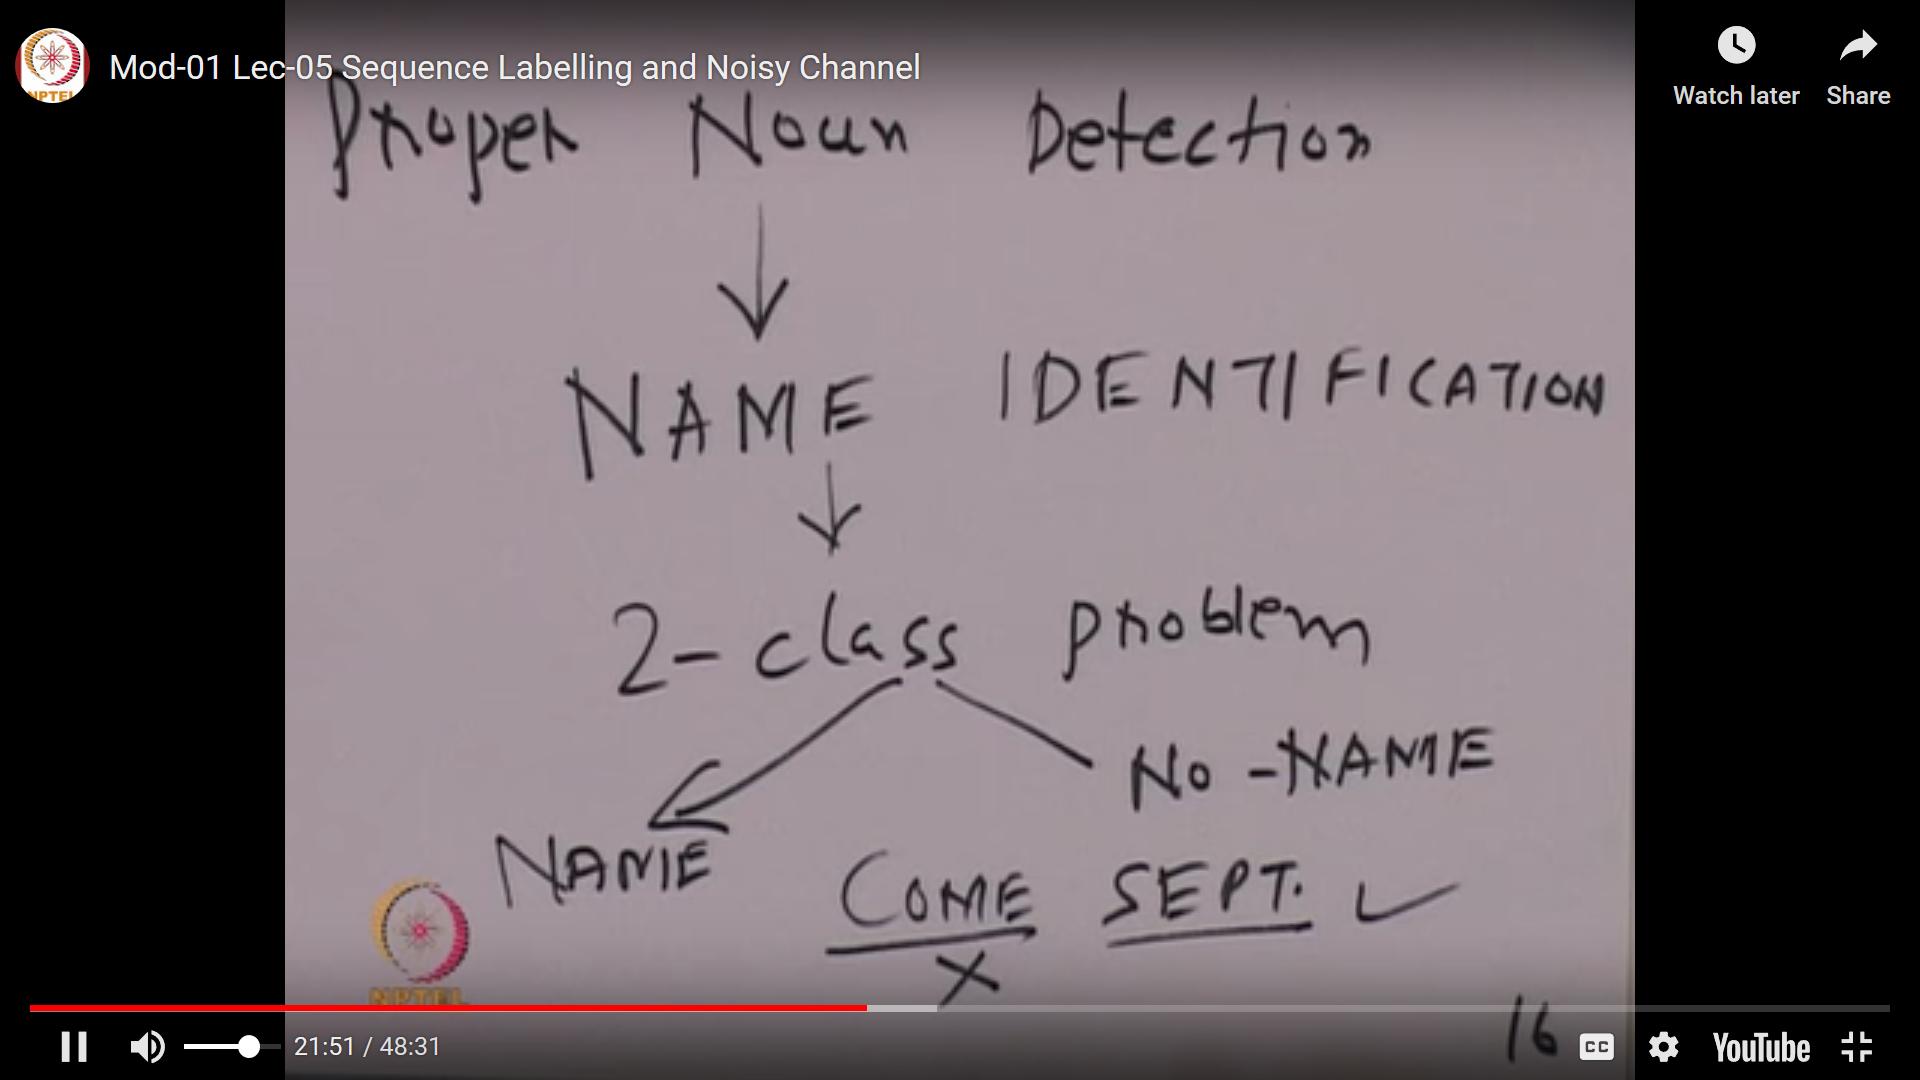 Mod-01 Lec-05 Sequence Labelling and Noisy Channel
Watch later Share
NPTEL
Proper Noun Detection
NAME IDENTIFICATION
2-class problem
No-NAME
NAME
COME SEPT. ✓
X
NPTEL
16
21:51 / 48:31
CC
YouTube